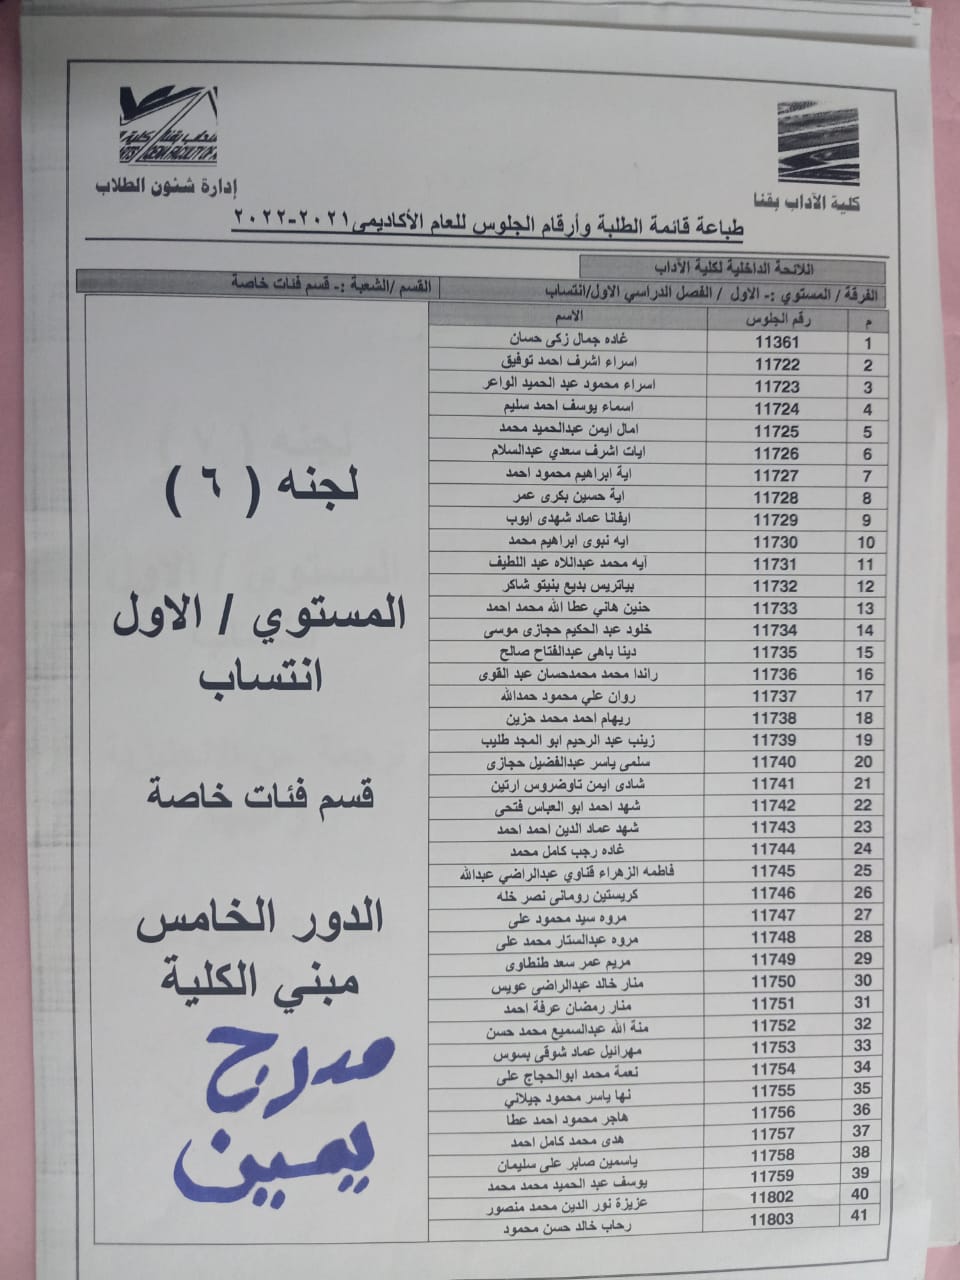 كلية الآداب بقنا
إدارة شئون الطلاب
طباعة قائمة الطلبة وأرقام الجلوس للعام الأكاديمى ٢٠٢١-٢٠٢٢
اللائحة الداخلية لكلية الأداب
الفرقة / المستوي :- الاول / الفصل الدراسي الاول/انتساب القسم /الشعبة :- قسم فئات خاصة
م رقم الجلوس الاسم
1 11361 غاده جمال زكى حسان
2 11722 اسراء اشرف احمد توفيق
3 11723 اسراء محمود عبد الحميد الواعر
4 11724 اسماء يوسف احمد سليم
5 11725 امال ايمن عبدالحميد محمد
6 11726 ايات اشرف سعدي عبدالسلام
7 11727 اية ابراهيم محمود احمد
8 11728 اية حسين بكرى عمر
9 11729 ايفانا عماد شهدى ايوب
10 11730 ايه نبوى ابراهيم محمد
11 11731 آيه محمد عبداللاه عبد اللطيف
12 11732 بياتريس بديع بنيتو شاكر
13 11733 حنين هاني عطا الله محمد احمد
14 11734 خلود عبد الحكيم حجازى موسى
15 11735 دينا باهى عبدالفتاح صالح
16 11736 راندا محمد محمدحسان عبد القوى
17 11737 روان علي محمود حمدالله
18 11738 ريهام احمد محمد حزين
19 11739 زينب عبد الرحيم ابو المجد طليب
20 11740 سلمى ياسر عبدالفضيل حجازى
21 11741 شادى ايمن تاوضروس ارتين
22 11742 شهد احمد ابو العباس فتحى
23 11743 شهد عماد الدين احمد احمد
24 11744 غاده رجب كامل محمد
25 11745 فاطمه الزهراء قناوي عبدالراضي عبدالله
26 11746 كريستين رومانى نصر خله
27 11747 مروه سيد محمود على
28 11748 مروه عبدالستار محمد على
29 11749 مريم عمر سعد طنطاوى
30 11750 منار خالد عبدالراضى عويس
31 11751 منار رمضان عرفة احمد
32 11752 منة الله عبدالسميع محمد حسن
33 11753 مهرائيل عماد شوقى بسوس
34 11754 نعمة محمد ابوالحجاج على
35 11755 نها ياسر محمود جيلاني
36 11756 هاجر محمود احمد عطا
37 11757 هدى محمد كامل احمد
38 11758 ياسمين صابر على سليمان
39 11759 يوسف عبد الحميد محمد محمد
40 11802 عزيزة نور الدين محمد منصور
41 11803 رحاب خالد حسن محمود
لجنه ( ٦ )
المستوي / الاول
انتساب
قسم فئات خاصة
الدور الخامس
مبني الكلية
مدرج
يمين